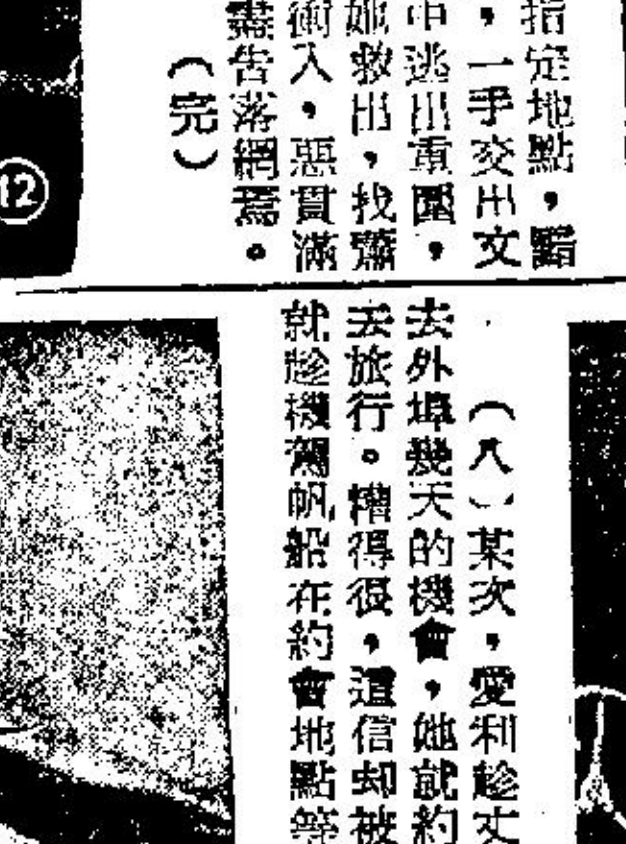 指定地點，
，一手交出文
中逃出重圍，
她救出，找
衝入，惡貫滿
盡告落網焉。
（完）
12
（八）某次，愛利趁丈
去外埠幾天的機會，她就約
去旅行。糟得很，這信却被
就趁機駕帆船在約會地點等